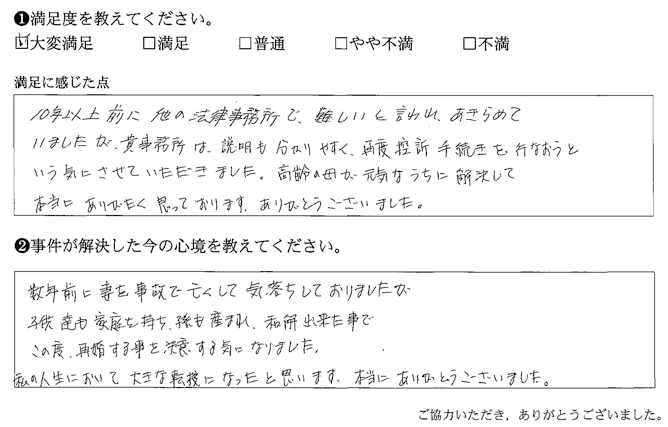 ❶満足度を教えてください。
☑大変満足 □満足 □普通 □やや不満 □不満
満足に感じた点
10年以上前に他の法律事務所で、難しいと言われ、あきらめて
いましたが、貴事務所は、説明も分かりやすく、再度控訴手続きを行なおうと
いう気にさせていただきました。高齢の母が元気なうちに解決して
本当にありがたく思っております。ありがとうございました。
❷事件が解決した今の心境を教えてください。
数年前に妻を事故で亡くして気落ちしておりましたが
子供達も家庭を持ち、孫も産まれ、和解出来た事で
この度、再婚する事を決意する気になりました。
私の人生において大きな転機になったと思います。本当にありがとうございました。
ご協力いただき、ありがとうございました。